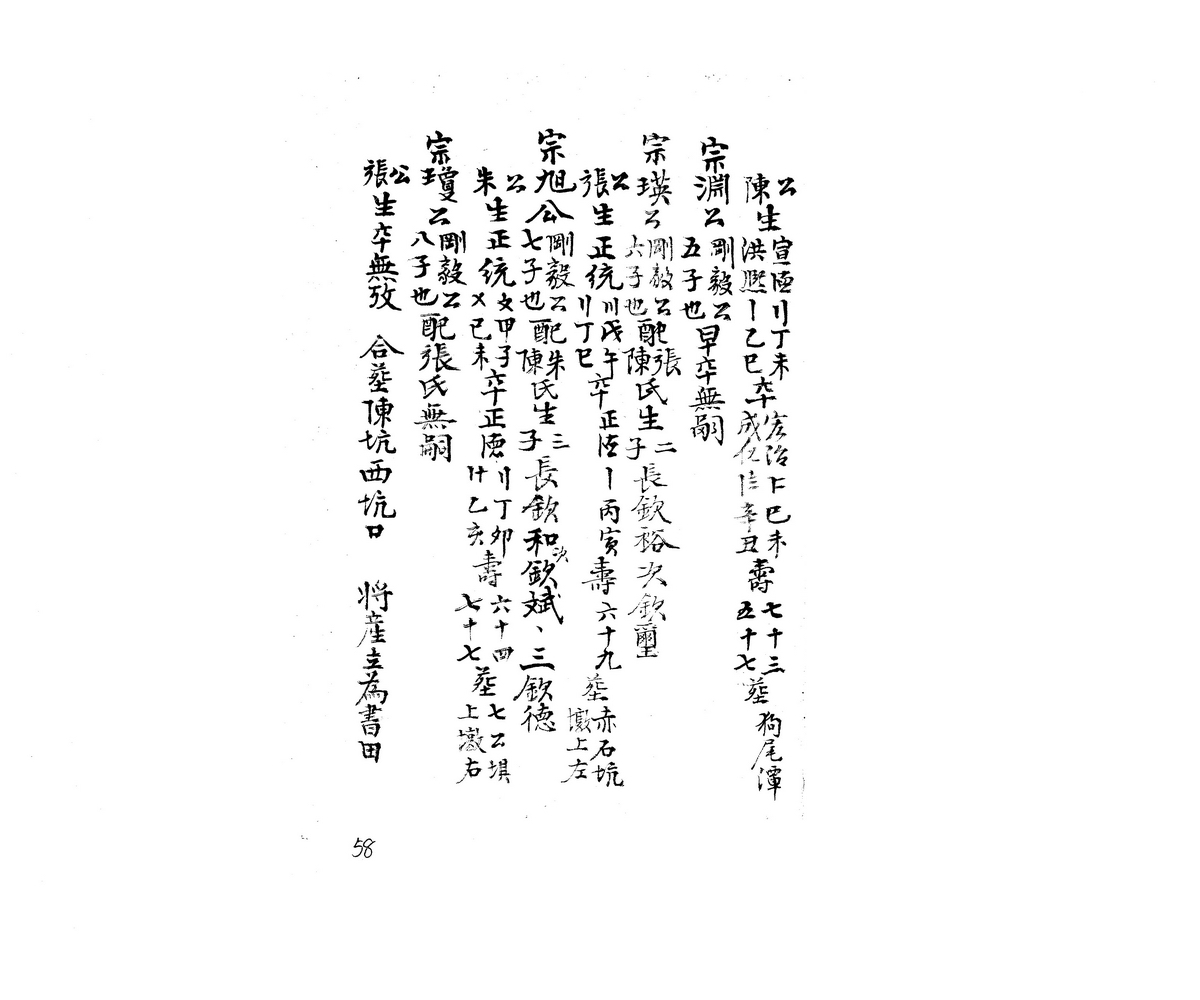 公陳生宣德〢丁未洪熙〡乙巳卒宏治巳未成化辛丑壽七十三五十七塟狗尾潭
宗淵公剛毅公五子也早卒無嗣
宗瑛公剛毅公六子也配張陳氏生二子長欽裕次欽璽
公張生正統〣戊午〢丁巳卒正德〡丙寅壽六十九塟赤石坑墩上左
宗旭公剛毅公七子也配朱陳氏生三子長欽和次欽斌、三欽德
公朱生正統〩甲子〤己未卒正德〢丁卯乙亥壽六十四七十七塟七公垻上墩右
宗瓊公剛毅公八子也配張氏無嗣
公張生卒無攷 合塟陳坑西坑口 将產立為書田
58